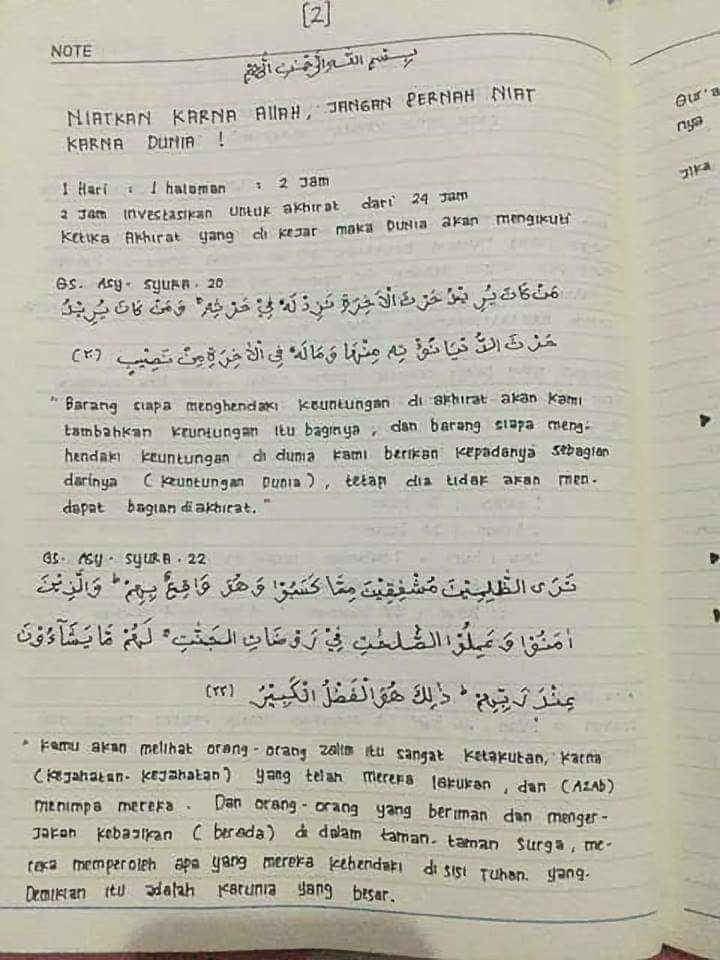 [2]
NOTE
بِسْمِ اللّٰهِ الرَّحْمٰنِ الرَّحِيْمِ
NIATKAN KARNA AllAH, JANGAN PERNAH NIAT
KARNA DUNIA !
1 Hari : 1 halaman : 2 Jam
2 Jam Investasikan Untuk akhirat dari 24 Jam
Ketika Akhirat yang di kejar maka Dunia akan mengikuti
QS. Asy- SYURA . 20
مَنْ كَانَ يُرِيْدُ حَرْثَ الْاٰخِرَةِ نَزِدْ لَهٗ فِيْ حَرْثِهٖ ۚ وَمَنْ كَانَ يُرِيْدُ
حَرْثَ الدُّنْيَا نُؤْتِهٖ مِنْهَا وَمَالَهٗ فِى الْاٰخِرَةِ مِنْ نَّصِيْبٍ (٢٠)
"Barang siapa menghendaki keuntungan di akhirat akan kami
tambahkan keuntungan itu baginya, dan barang siapa meng-
hendaki keuntungan di dunia kami berikan kepadanya sebagian
darinya (keuntungan Dunia), tetapi dia tidak akan men-
dapat bagian di akhirat."
QS. Asy- SYURA . 22
تَرَى الظّٰلِمِيْنَ مُشْفِقِيْنَ مِمَّا كَسَبُوْا وَهُوَ وَاقِعٌۢ بِهِمْ ۗ وَالَّذِيْنَ
اٰمَنُوْا وَعَمِلُوا الصّٰلِحٰتِ فِيْ رَوْضَاتِ الْجَنّٰتِ ۚ لَهُمْ مَّا يَشَاۤءُوْنَ
عِنْدَ رَبِّهِمْ ۗ ذٰلِكَ هُوَ الْفَضْلُ الْكَبِيْرُ (٢٢)
"Kamu akan melihat orang-orang zalim itu sangat ketakutan, karna
(kejahatan-kejahatan) yang telah mereka lakukan, dan (AZAb)
menimpa mereka. Dan orang-orang yang beriman dan menger-
Jakan kebajikan (berada) di dalam taman-taman Surga, me-
reka memperoleh apa yang mereka kehendaki di sisi Tuhan. yang-
Demikian itu adalah karunia yang besar.
Qur'a
nya
Jika